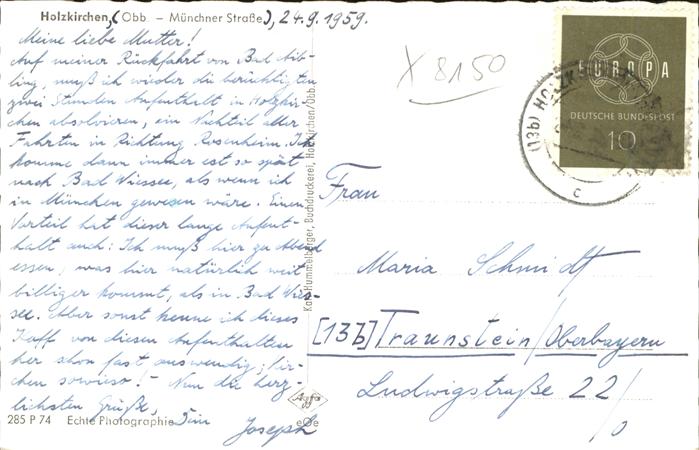 Holzkirchen, (Obb. – Münchner Straße), 24.9.1959.
Meine liebe Mutter!
Auf meiner Rückfahrt von Bad Aib-
ling, muß ich wieder die berüchtigten
zwei Stunden Aufenthalt in Holzkir-
chen absolvieren, ein Nachteil aller
Fahrten in Richtung Rosenheim. Ich
komme dann immer erst so spät
nach Bad Wiessee, als wenn ich
in München gewesen wäre. Einen
Vorteil hat dieser lange Aufent-
halt auch: Ich muß hier zu Abend
essen, was hier natürlich weit
billiger kommt, als in Bad Wies-
see. Aber sonst kenne ich dieses
Kaff von diesen Aufenthalten
her schon fast auswendig; Mün-
chen sowieso! – Nun die herz-
lichsten Grüße, Dein
Joseph
285 P 74 Echte Photographie
Agfa
Karl Hummelberger, Buchdruckerei, Holzkirchen/Obb.
X 8150
EUROPA
DEUTSCHE BUNDESPOST
10
(13b) HOLZK
c
Frau
Maria Schmidt
[13b] Traunstein/Oberbayern
Ludwigstraße 22/
/0